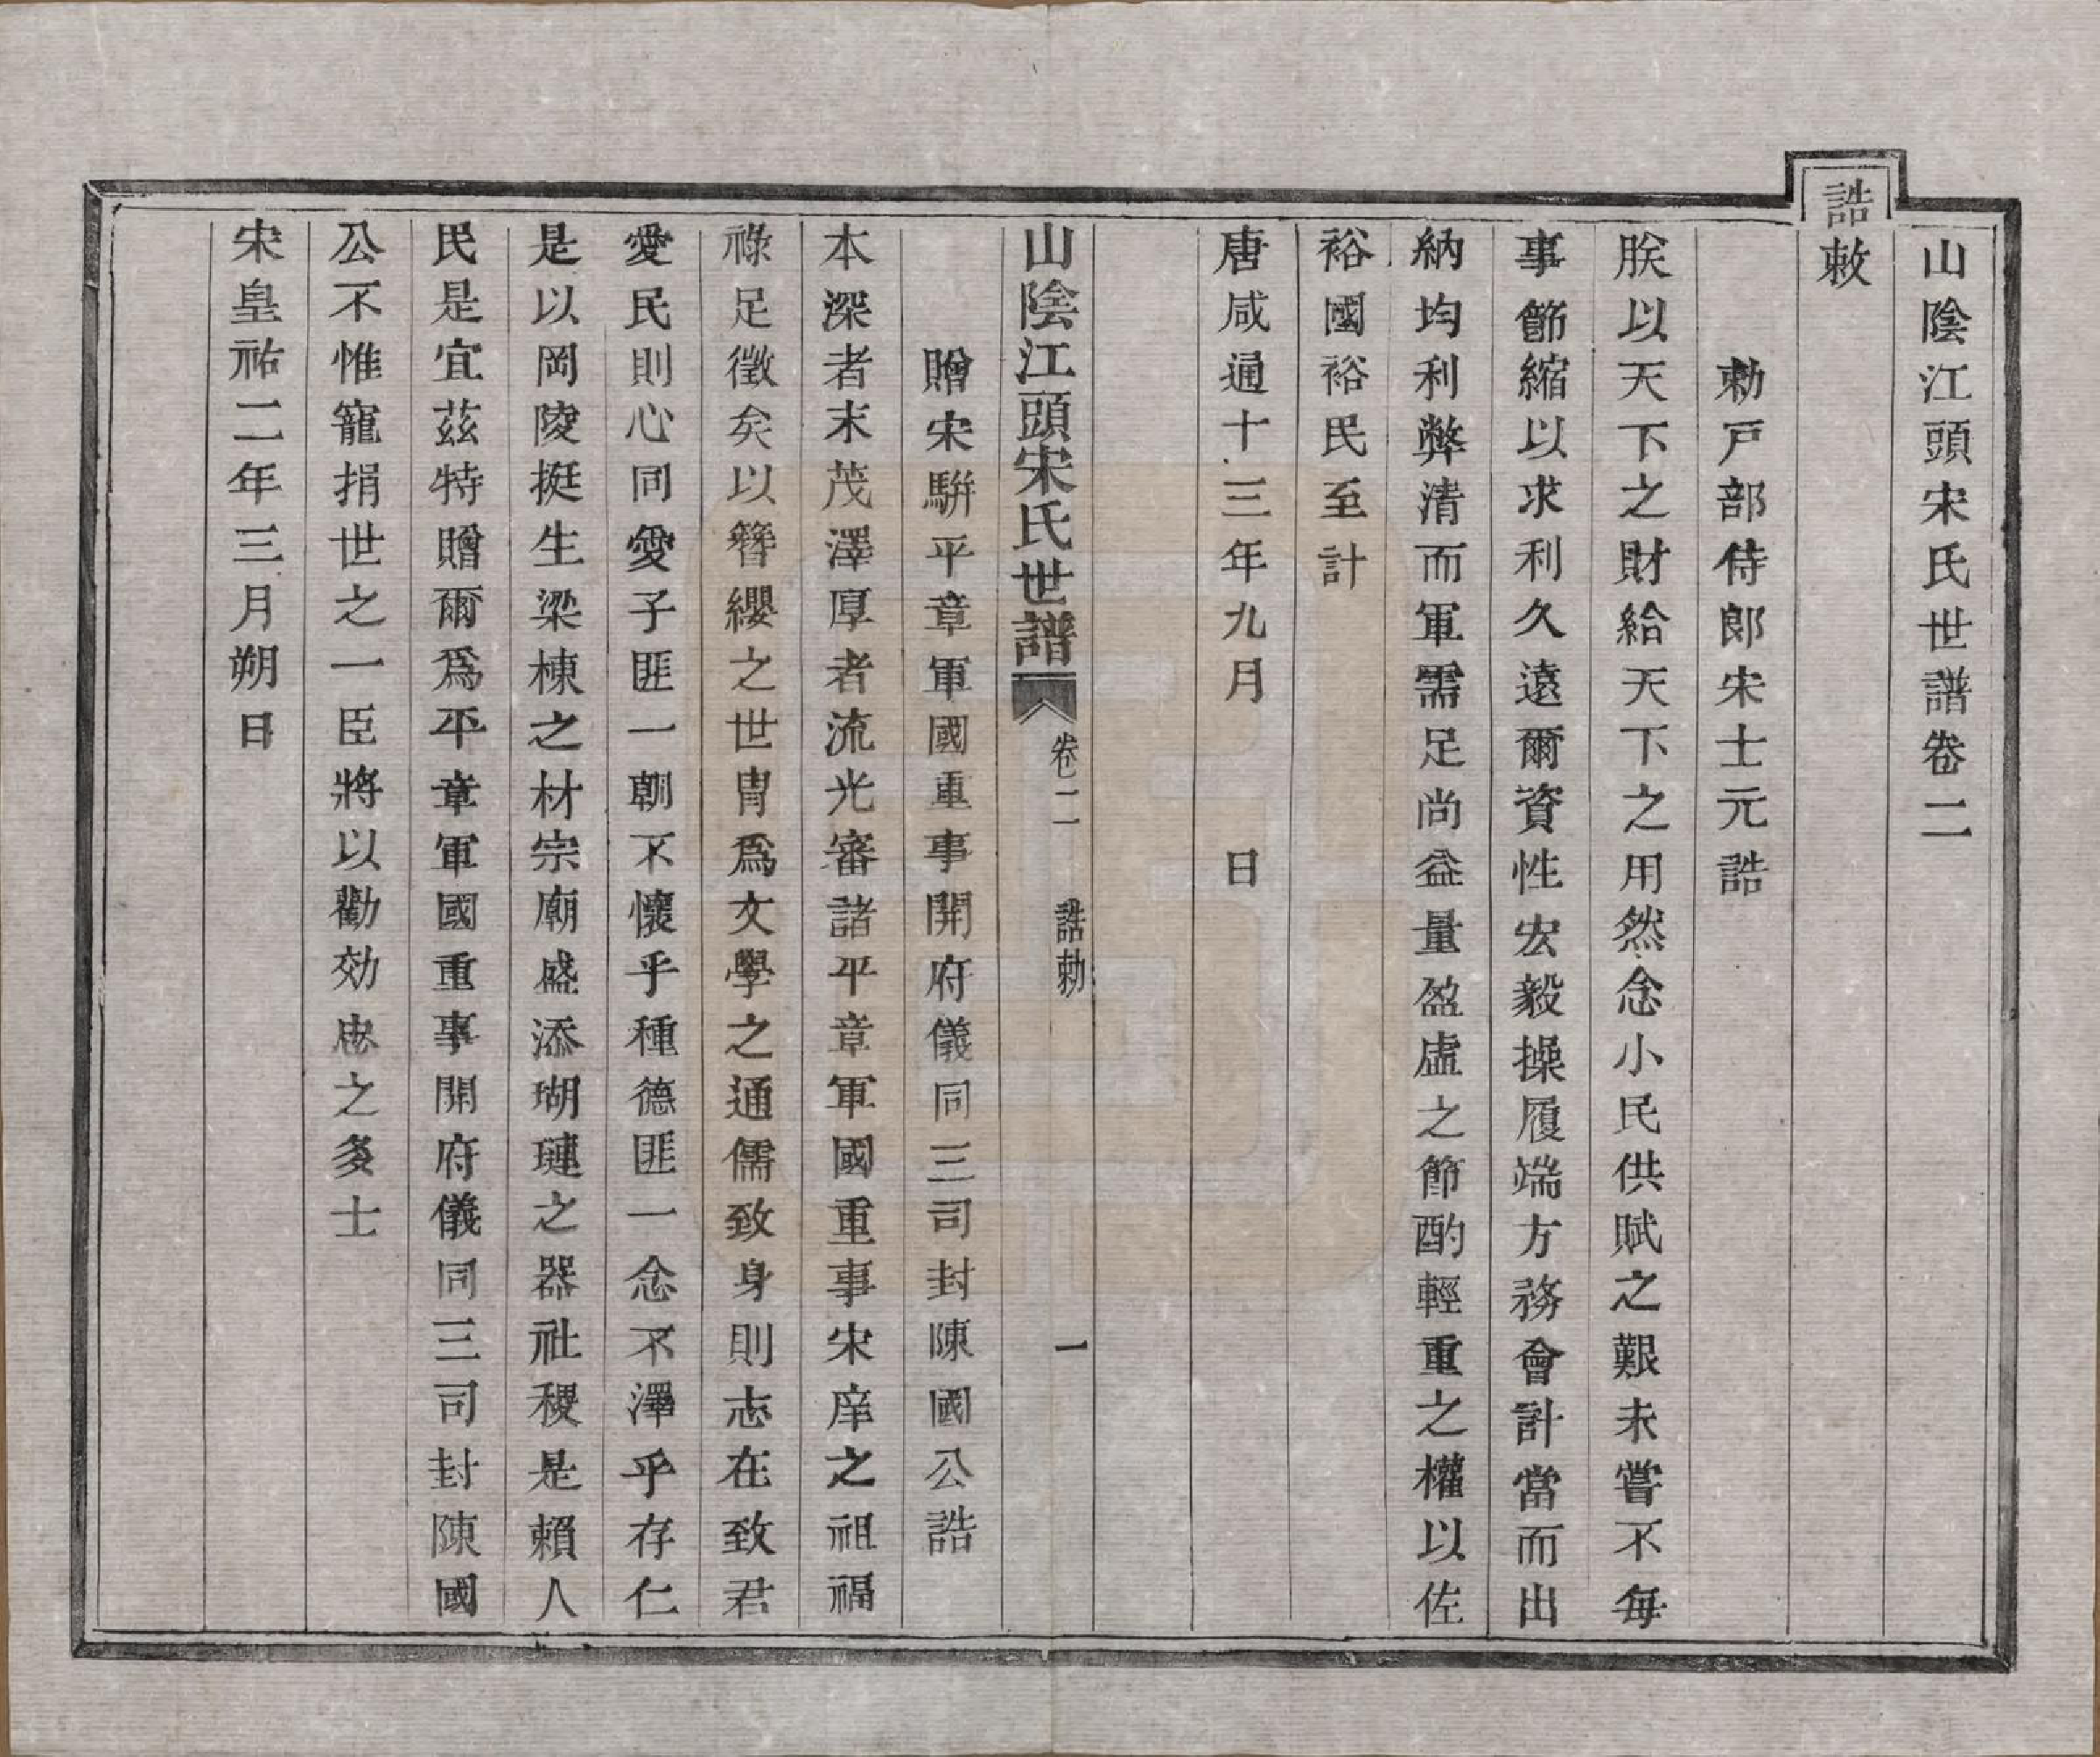 山陰江頭宋氏世譜卷二
誥敕
勅戸部侍郎宋士元誥
朕以天下之財給天下之用然念小民供賦之艱未嘗不每
事節縮以求利久遠爾資性宏毅操履端方務會計當而出
納均利弊清而軍需足尚益量盈虛之節酌輕重之權以佐
裕國裕民至計
唐咸通十三年九月　日
山陰江頭宋氏世譜　卷二　誥勅　一
贈宋駢平章軍國重事開府儀同三司封陳國公誥
本深者末茂澤厚者流光審諸平章軍國重事宋庠之祖福
祿足徵矣以簪纓之世胄爲文學之通儒致身則志在致君
愛民則心同愛子匪一朝不懷乎種德匪一念不澤乎存仁
是以岡陵挺生梁棟之材宗廟盛添瑚璉之器社稷是賴人
民是宜茲特贈爾爲平章軍國重事開府儀同三司封陳國
公不惟寵捐世之一臣將以勸効忠之多士
宋皇祐二年三月朔日